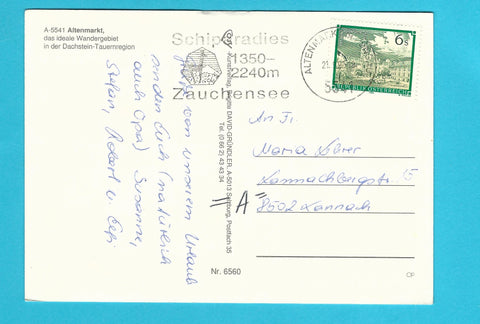 A-5541 Altenmarkt,
das ideale Wandergebiet
in der Dachstein-Tauernregion
Schiparadies
1350–
2240m
Zauchensee
ALTENMARKT
6 S
REPUBLIK ÖSTERREICH
Grüße von unserem Urlaub
senden Euch (natürlich
auch Opa) Susanne,
Stefan, Robert u.
DAVID-GRÜNDLER, A-5013 Salzburg, Postfach 35
Tel. (0 66 2) 43 43 34
An Fr.
Maria
15
=A=
8502 Lannach
Nr. 6560
CF